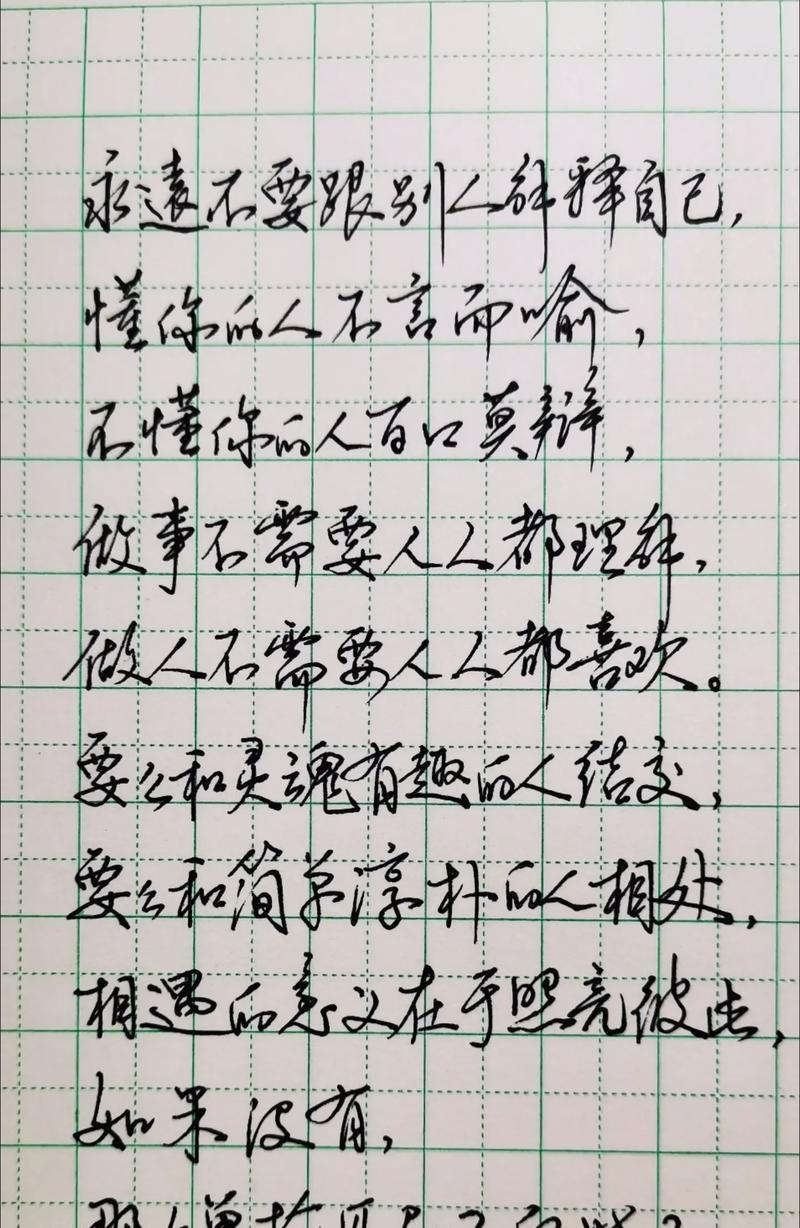 永遠不要跟别人解释自己,
懂你的人不言而喻,
不懂你的人百口莫辩,
做事不需要人人都理解,
做人不需要人人都喜欢。
要么和灵魂有趣的人结交,
要么和简单淳朴的人相处,
相遇的意义在于照亮彼此,
如果没有,